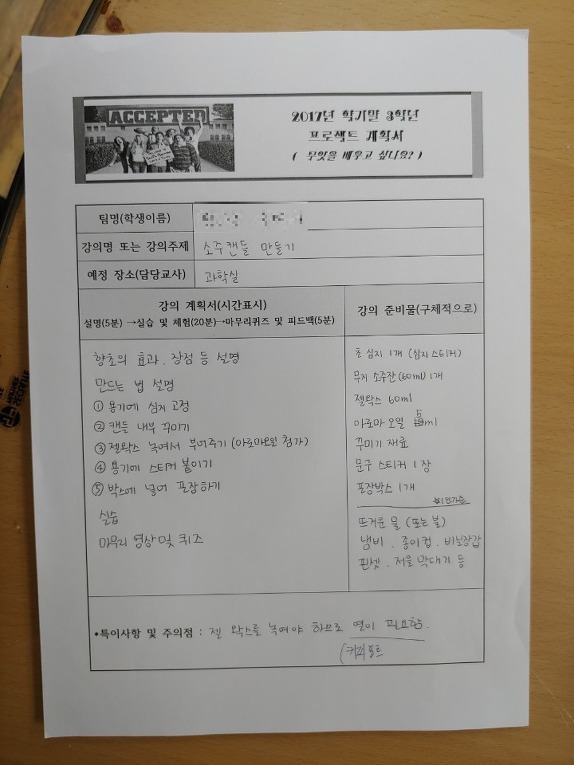 ACCEPTED
2017년 학기말 3학년
프로젝트 계획서
( 무엇을 배우고 싶나요? )
팀명(학생이름)
강의명 또는 강의주제 소주캔들 만들기
예정 장소(담당교사) 과학실
강의 계획서(시간표시)
설명(5분) →실습 및 체험(20분)→마무리퀴즈 및 피드백(5분)
강의 준비물(구체적으로)
향초의 효과, 장점 등 설명
만드는 법 설명
① 용기에 심지 고정
② 캔들 내부 꾸미기
③ 젤왁스 녹여서 부어주기 (아로마오일 첨가)
④ 용기에 스티커 붙이기
⑤ 박스에 넣어 포장하기
실습
마무리 영상 및 퀴즈
초 심지 1개 (심지스티커)
무지 소주잔 (60ml) 1개
젤왁스 60ml
아로마 오일 5ml
꾸미기 재료
문구 스티커 1장
포장박스 1개
뜨거운 물 (또는 불)
냄비, 종이컵, 비닐장갑
핀셋, 저울 막대기 등
•특이사항 및 주의점 : 젤 왁스를 녹여야 하므로 열이 필요함.
커피포트